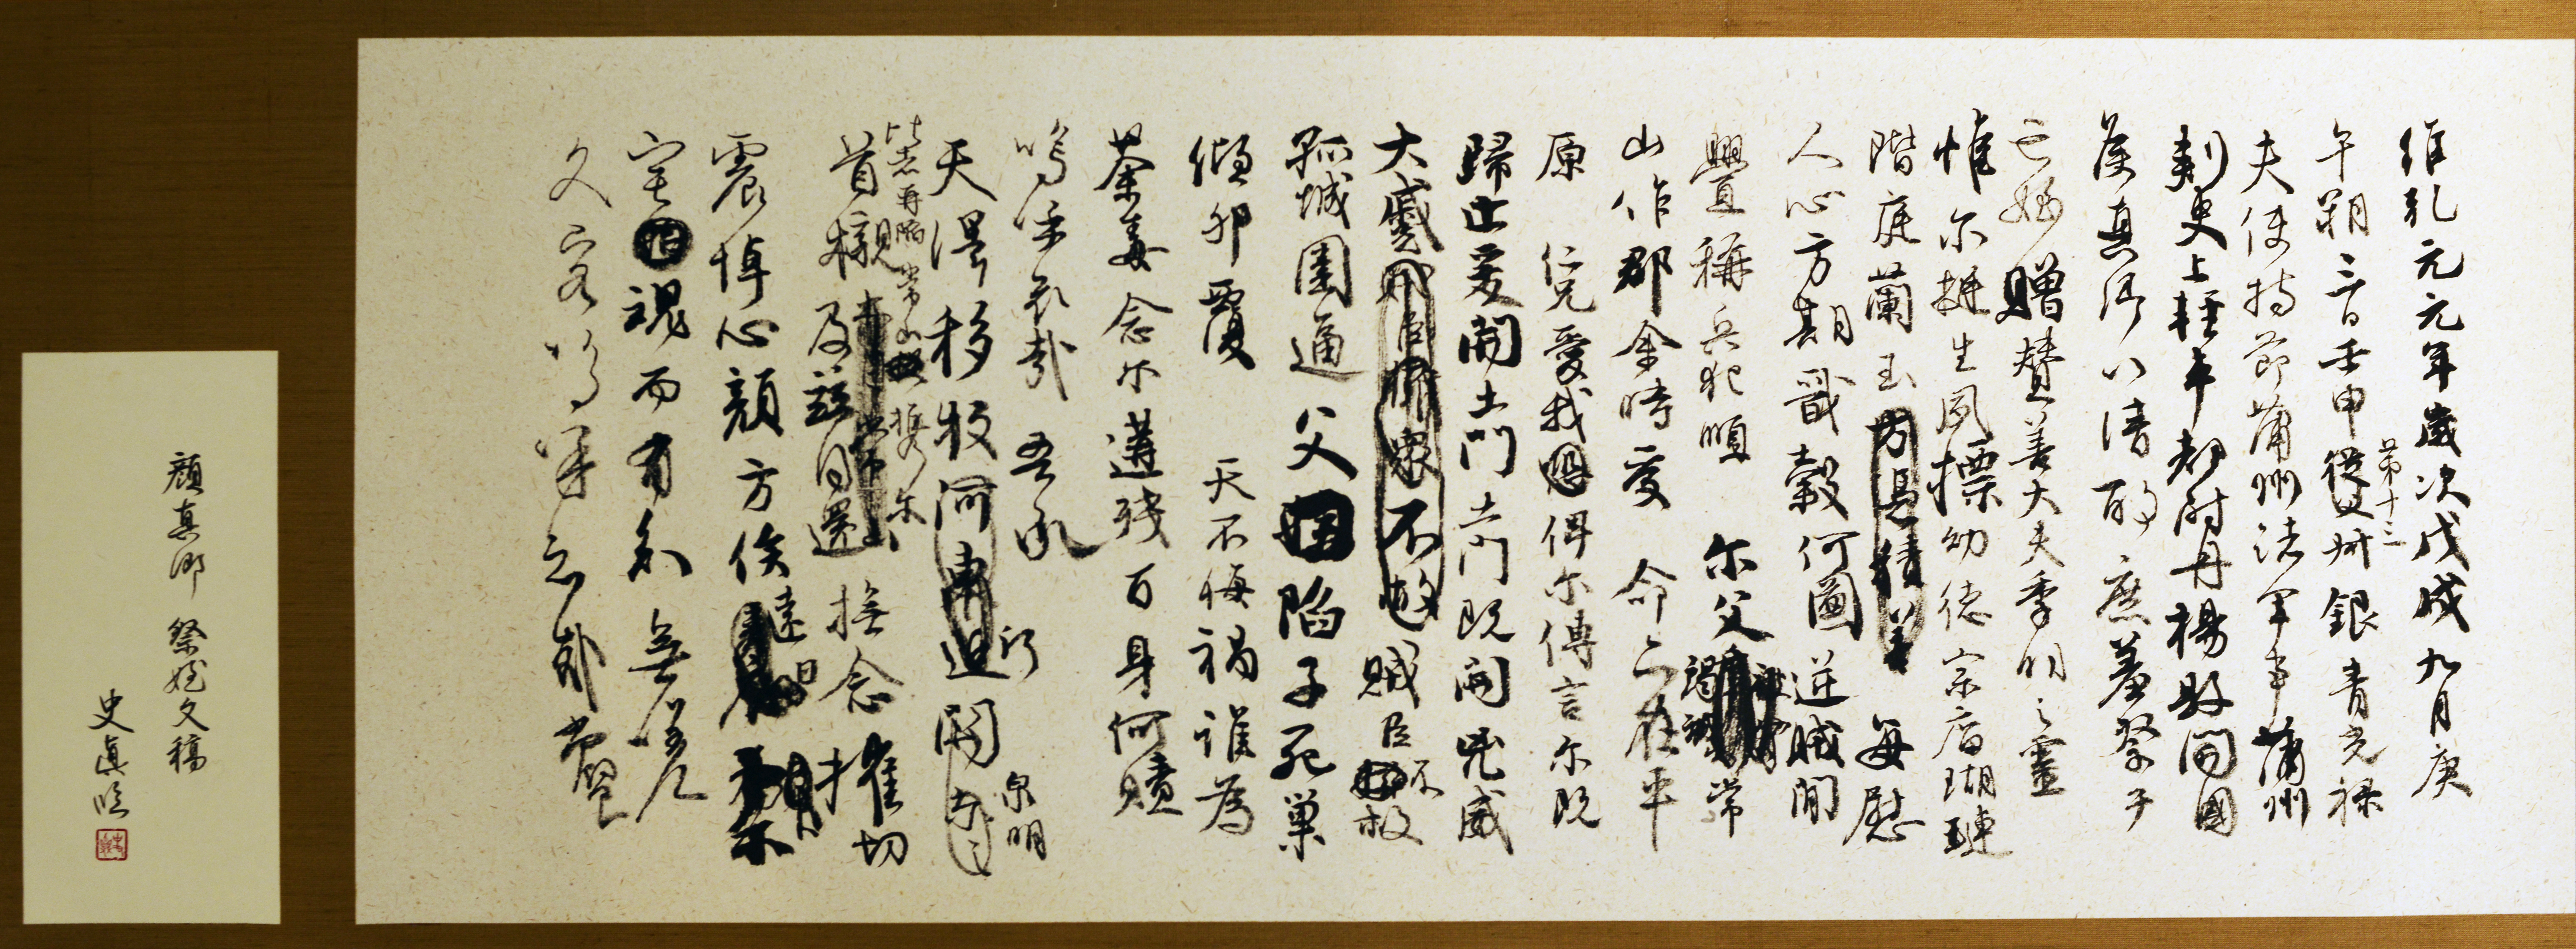 維乾元元年歲次戊戌九月庚
午朔三日壬申從父
第十三
州銀青光禄
夫使持節蒲州諸軍事蒲州
刺史上輕車都尉丹楊縣開國
侯真卿以清酌庶羞祭于
亡姪贈贊善大夫季明之靈
惟爾挺生夙標幼德宗廟瑚璉
階庭蘭玉方憑積善每慰
人心方期戩穀何圖逆賊閒
舋稱兵犯順爾父竭誠常
山作郡余時受命亦在平
原仁兄愛我俾爾傳言爾既
歸止爰開土門土門既開凶威
大蹙賊臣不救
孤城圍逼父陷子死巢
傾卵覆天不悔禍誰為
荼毒念爾遘殘百身何贖
嗚乎哀哉吾承
天澤移牧河東近
所
關
泉明
比者再陷常山攜爾
首櫬及茲同還撫念摧切
震悼心顏方俟遠日
爾
宅魂而有知無嗟
久客嗚呼哀哉尚饗
顏真卿 祭姪文稿
史真臨